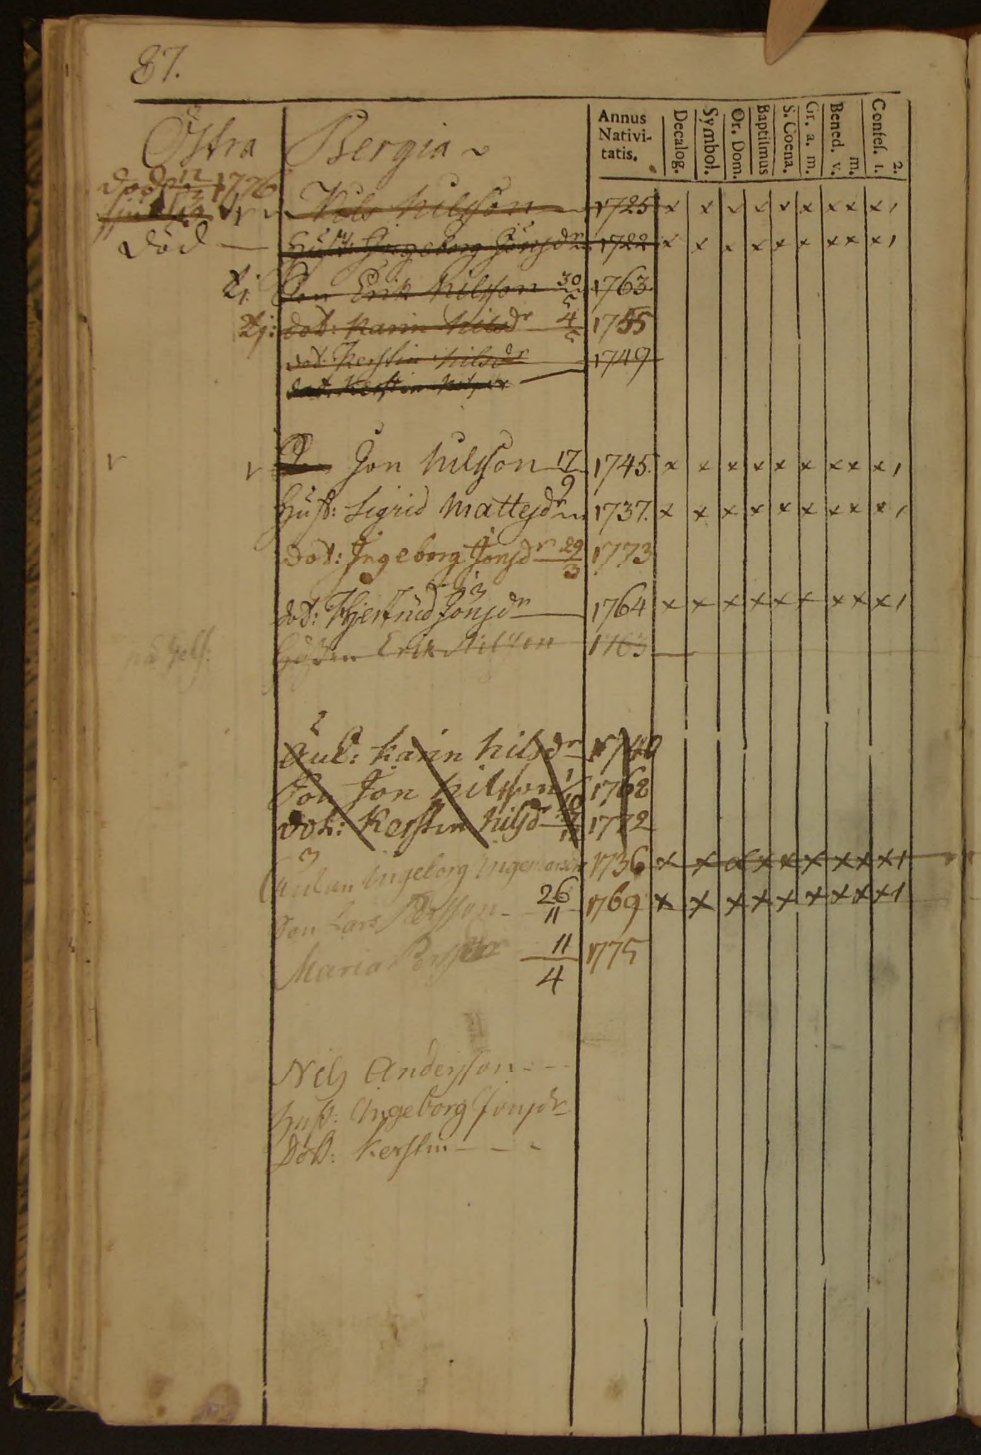 87.
Annus Nativi- tatis. Decalog. Symbol. Or. Dom. Baptismus S. Coena. Gr. a. m. Bened. m. v. Confes. 2. 1.
Östra Bergia
död 12/3 1776
Nils Nilsson 1725 x x x x x x x x x 1
död Hust: Ingeborg Jönsdr 1722 x x x x x x x x x 1
tj Son Erik Nilsson 30/5 1763
tj: dot: Karin Nilsdr 4/5 1755
dot: Kerstin Nilsdr 1749
dot: Kerstin
Jon Nilsson 17/9 1745. x x x x x x x x x 1
Hust: Sigrid Mattesdr 1737. x x x x x x x x x 1
dot: Ingeborg Jonsdr 29/3 1773
dot: Jönsdr 1764 x x x x x x x x x 1
Erik Nilsson 1763
Enk: Karin Nilsdr 1740
Son Jon Nilsson 1/10 1762
dot: Kerstin Nilsdr 1772
Enkan Ingeborg 1736 x x x x x x x x x 1
Son Lars Persson 26/11 1769 x x x x x x x x x 1
Maria Persdr 11/4 1775
Nils Andersson
Hust: Ingeborg Jonsdr
Dott: Kerstin